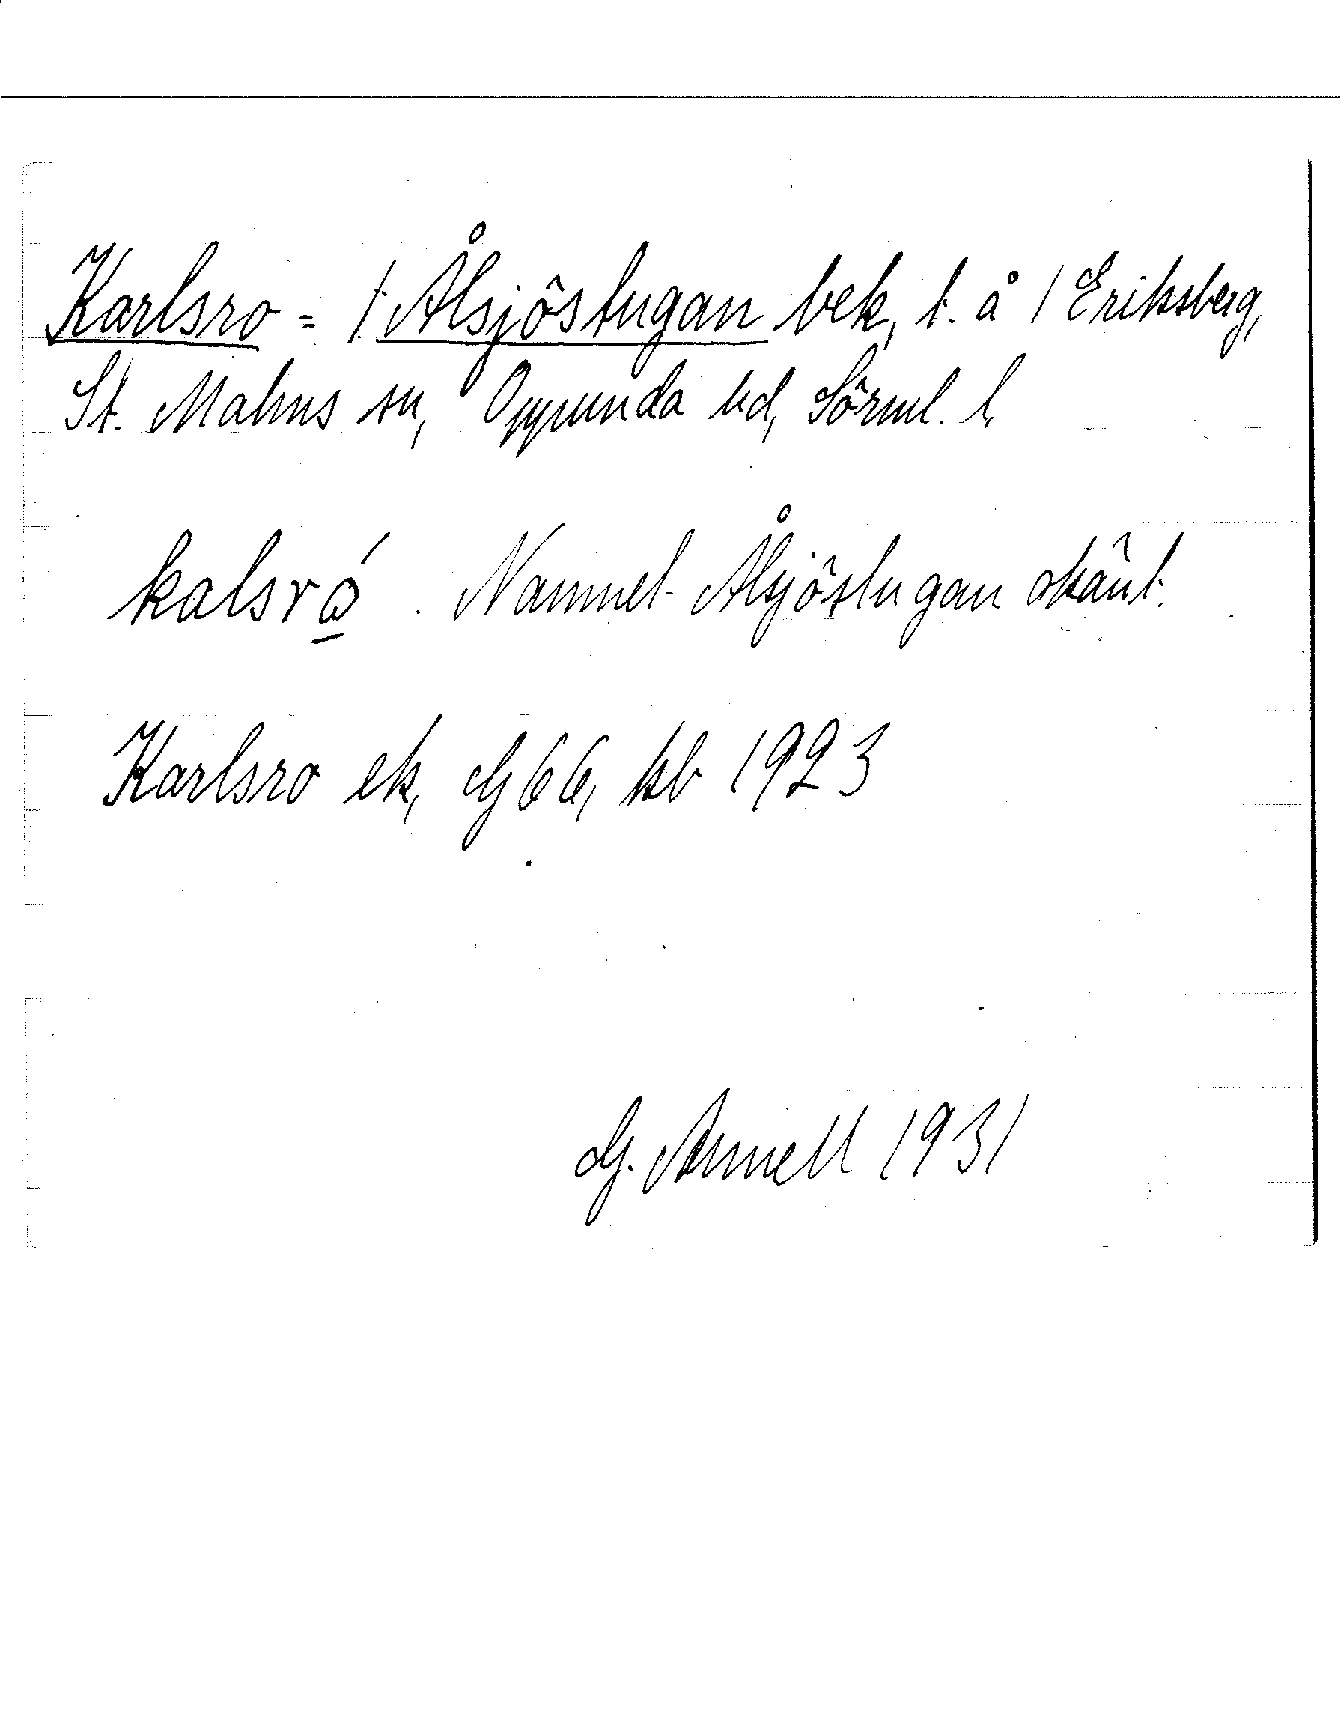 Karlsro = /: Ålsjöstugan bek, t. å / Eriksberg,
St. Malms sn, Oppunda hd, Sörml. l.
kalsró . Namnet Ålsjöstugan okänt.
Karlsro ek, G 66, kb 1923
G. Arnell 1931